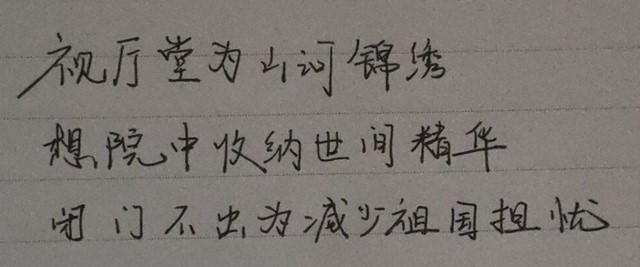 视厅堂为山河锦绣
想院中收纳世间精华
闭门不出为减少祖国担忧